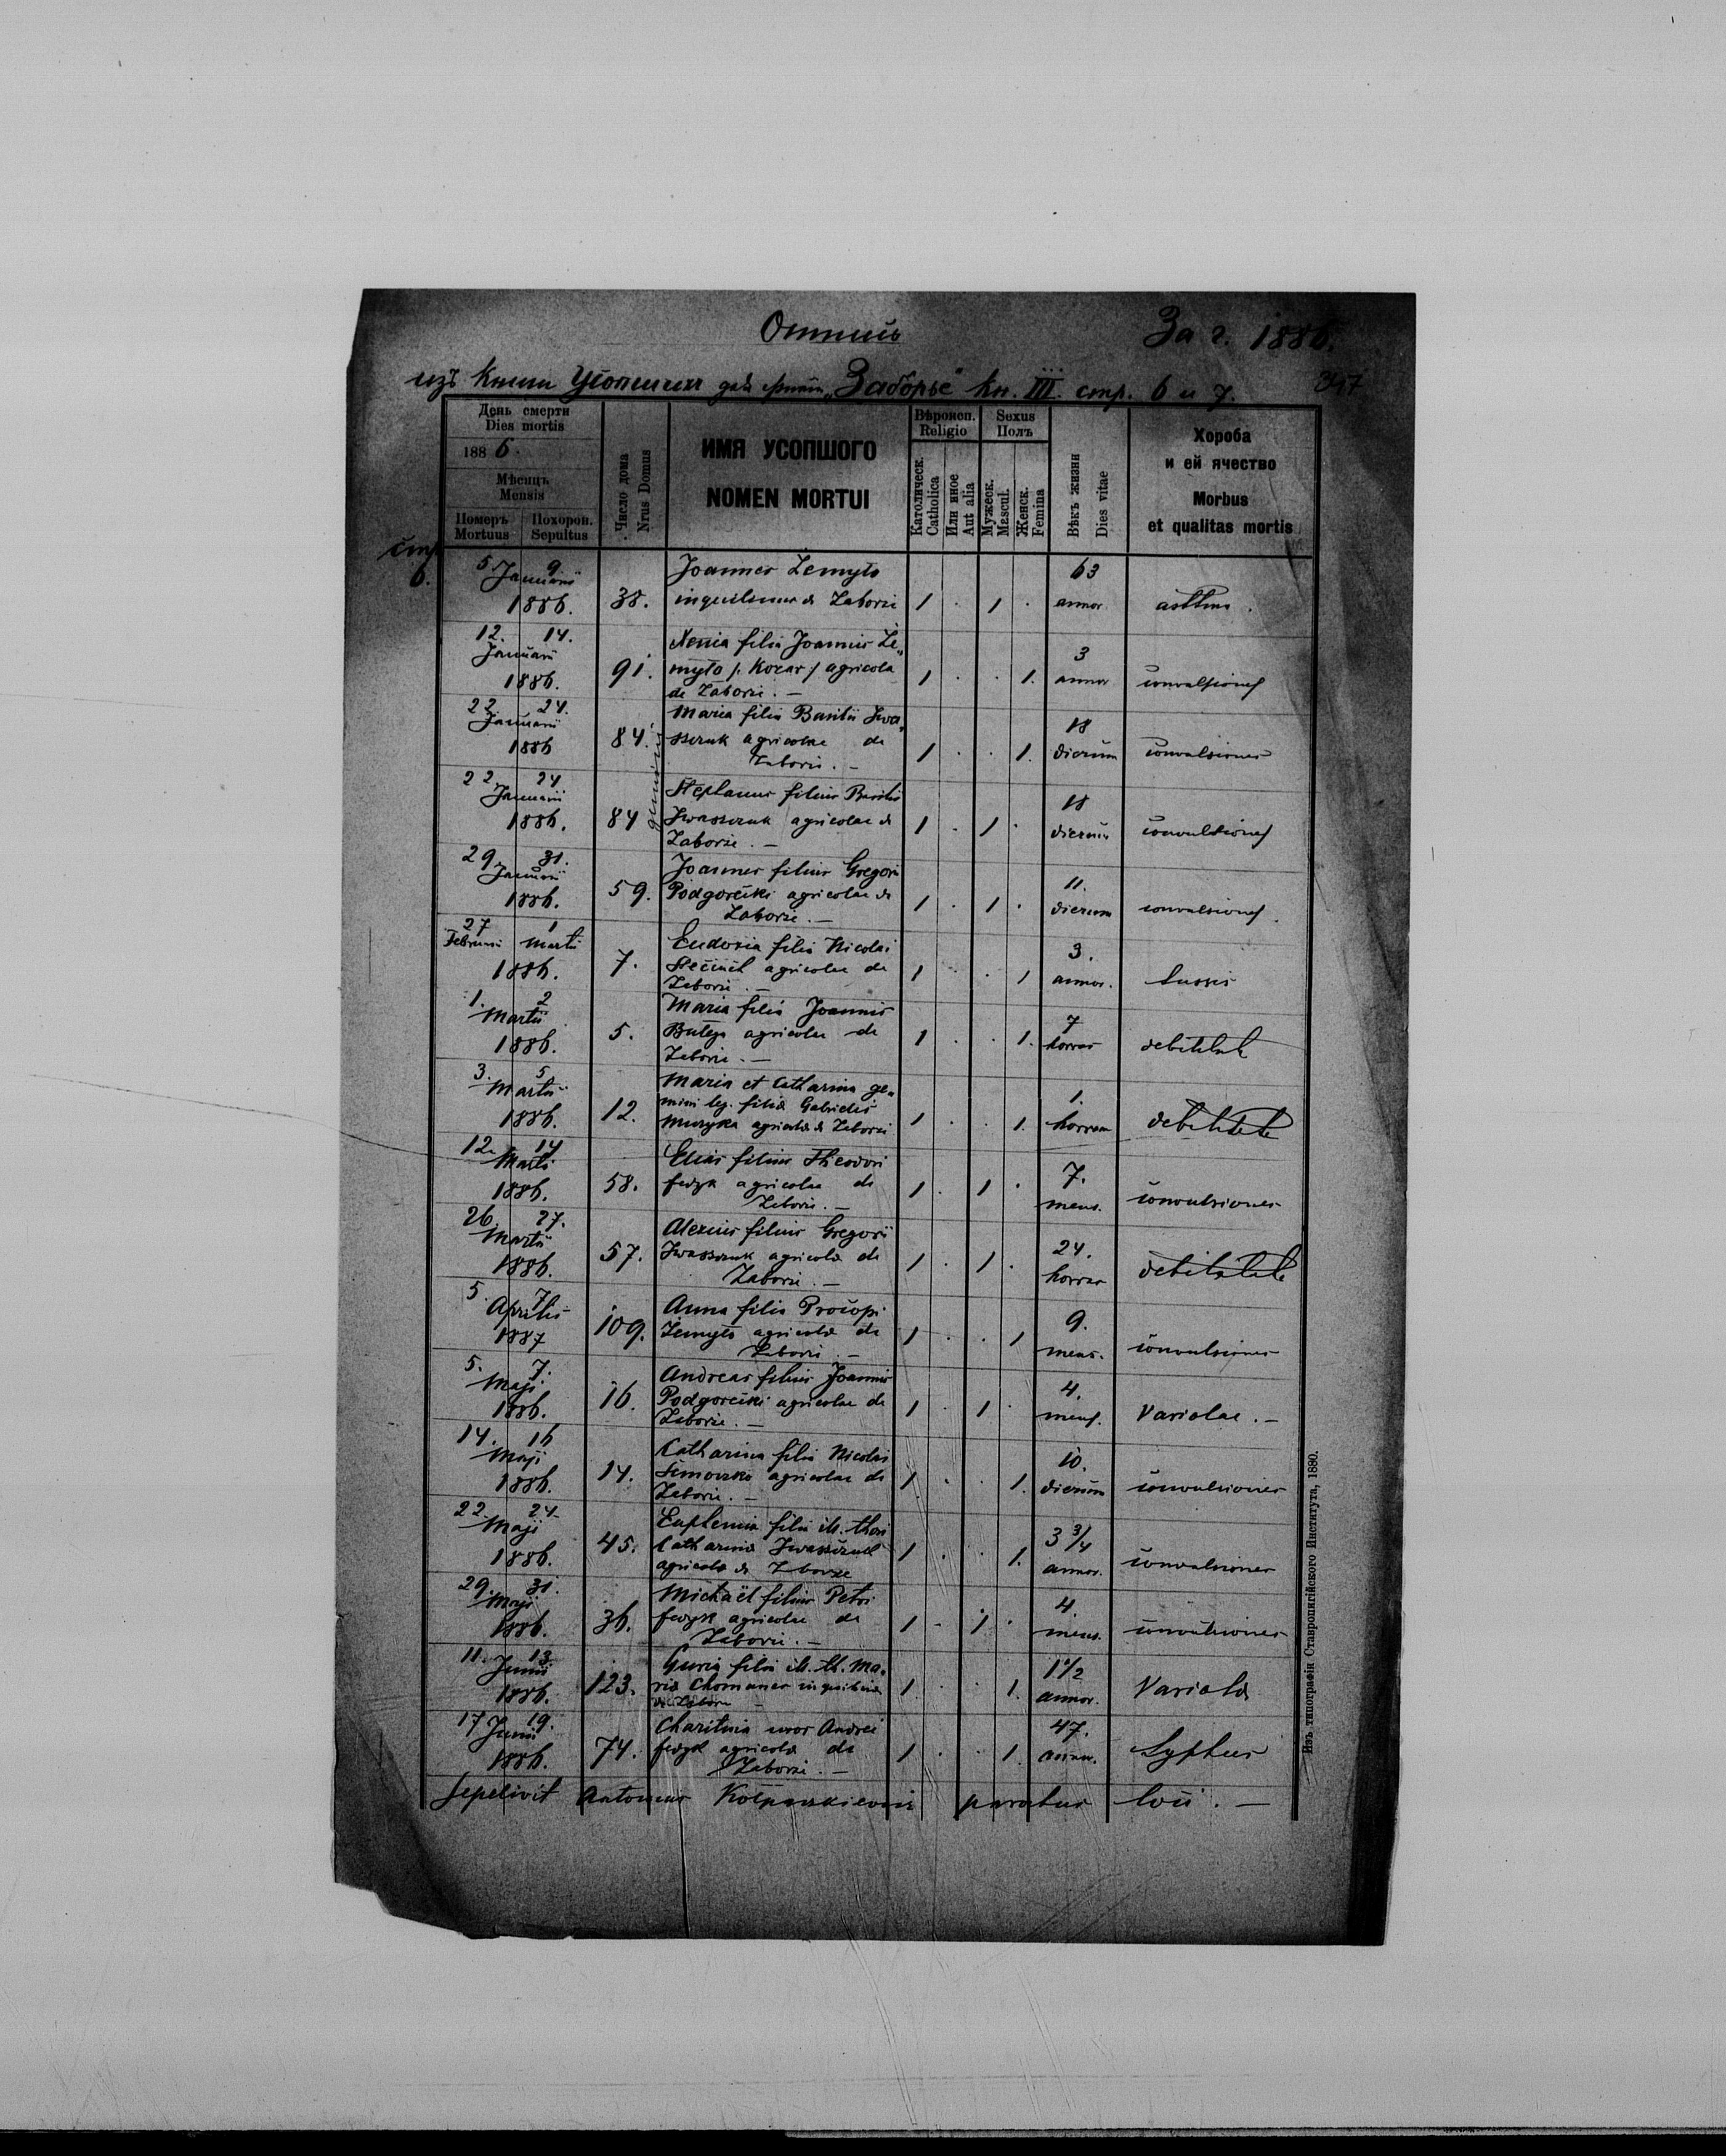 За г. 1886.
изъ Книги Усопшихъ для филіи „Заборье" Кн. III. стр. 6 и 7.
347
День смерти
Dies mortis
1886.
Мѣсяцъ
Mensis
Померъ Похорон.
Mortuus Sepultus
Число дома
Nrus Domus
ИМЯ УСОПШОГО
NOMEN MORTUI
Вѣроисп.
Religio
Католическ.
Catholica
Или иное
Aut alia
Sexus
Полъ
Мужеск.
Mascul.
Женск.
Femina
Вѣкъ жизни
Dies vitae
Хороба
и ей ячество
Morbus
et qualitas mortis
стр.
6.
5. 9. Joannes Lemyto 63
Januarii
1886. 38. inquilinus de Zaborze 1 . 1 . annor.
12. 14. Xenia filia Joannis Le„
Januarii 3
1886. 91. myto /: Kozar :/ agricola 1 . . 1. annor. convulsiones
de Zaborze. —
22. 24. Maria filia Basilii Iwa„
Januarii 18
1886 84. szczuk agricolae de 1 . . 1. dierum convulsiones
Zaborze. —
gemini
22. 24 Stephanus filius Basilii
Januarii 18
1886. 84 Iwaszczuk agricolae de 1 . 1 . dierum convulsiones
Zaborze. —
29. 31. Joannes filius Gregorii
Januarii 11.
1886. 59. Podgorecki agricolae de 1 . 1 . dierum convulsiones.
Zaborze. —
27 1 Eudoxia filia Nicolai
Februarii Martii 3.
1886. 7. agricolae de 1 . . 1 annor. tussis
Zaborze. —
1. 2 Maria filia Joannis
Martii 7
1886. 5. agricolae de 1 . . 1. horras debilitate
Zaborze. —
3. 5. Maria et Catharina ge„
Martii mini leg. filiae Gabrielis 1.
1886. 12. Muzyka agricolae de Zaborze 1 . . 1. horram debilitate
12. 14 Elias filius Theodori
Martii 7.
1886. 58. Fedyk agricolae de 1 . 1 . mens. convulsiones
Zaborze. —
26. 27. Alexius filius Gregorii
Martii 24.
1886. 57. Iwaszczuk agricolae de 1 . 1 . horras debilitate
Zaborze. —
5. 7. Anna filia Procopi
Aprilis 9.
1887 109. Lemyto agricolae de 1 . . 1 mens. convulsiones
Zaborze. —
5. 7. Andreas filius Joannis
Maji 4.
1886. 16. Podgorecki agricolae de 1 . 1 . mens. Variolae. —
Zaborze. —
14. 16 Catharina filia Nicolai
Maji 10.
1886. 14. agricolae de 1 . . 1. dierum convulsiones
Zaborze. —
22. 24. Euphemia filia ill. thori
Maji 3 3/4
1886. 45. Catharina Iwaszczuk 1 . . 1. annor. convulsiones
agricola de Zborze
29. 31. Michaël filius Petri
Maji 4.
1886. 36. Fedyk agricolae de 1 . 1 . mens. convulsiones
Zaborze. —
11. 13. filia ill. th. Ma„
Junii 1 1/2
1886. 123. ria inquilina 1 . . 1. annor. Variola
de Zaborze
17 19. uxor Andrei
Junii 47.
1886. 74. Fedyk agricola de 1 . . 1. annor.
Zaborze. —
Sepelivit Antonius parochus loci. —
Изъ типографіи Ставропигійского Института, 1880.